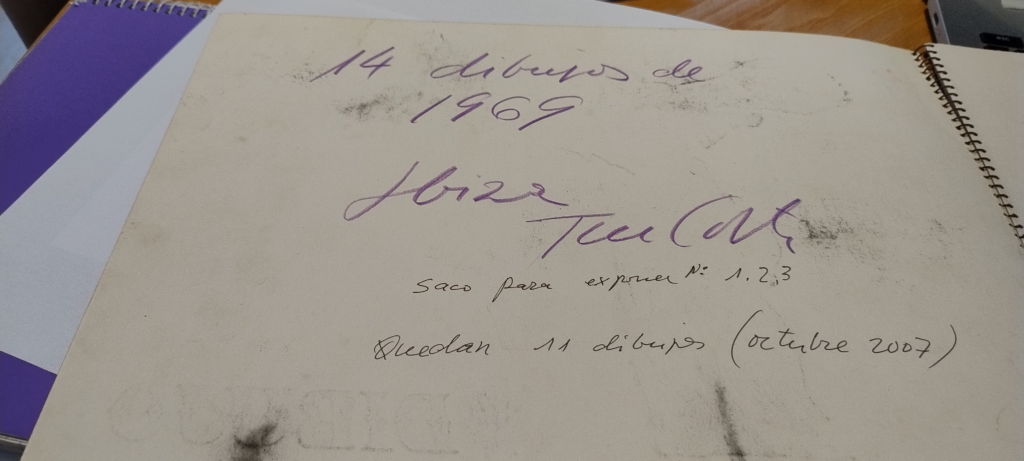 14 dibujos de
1969
Ibiza
saco para exponer Nº 1.2.3
Quedan 11 dibujos (octubre 2007)